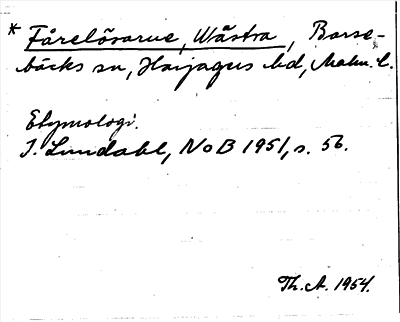 * Fårelösarne, Wästra, Barse-
bäcks sn, Harjagers hd, Malm. l.
Etymologi.
I. Lundahl, NoB 1951, s. 56.
Th. A. 1954.